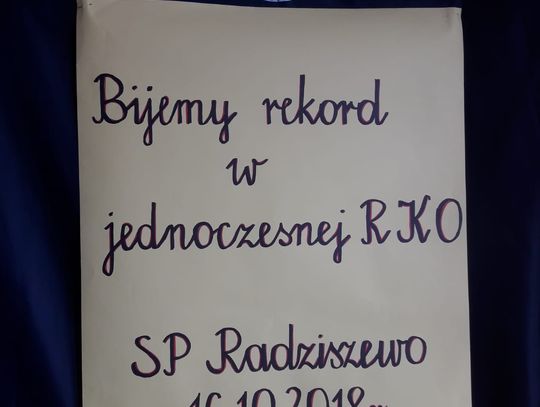 Bijemy rekord
w
jednoczesnej RKO
SP Radziszewo
16.10.2018r.